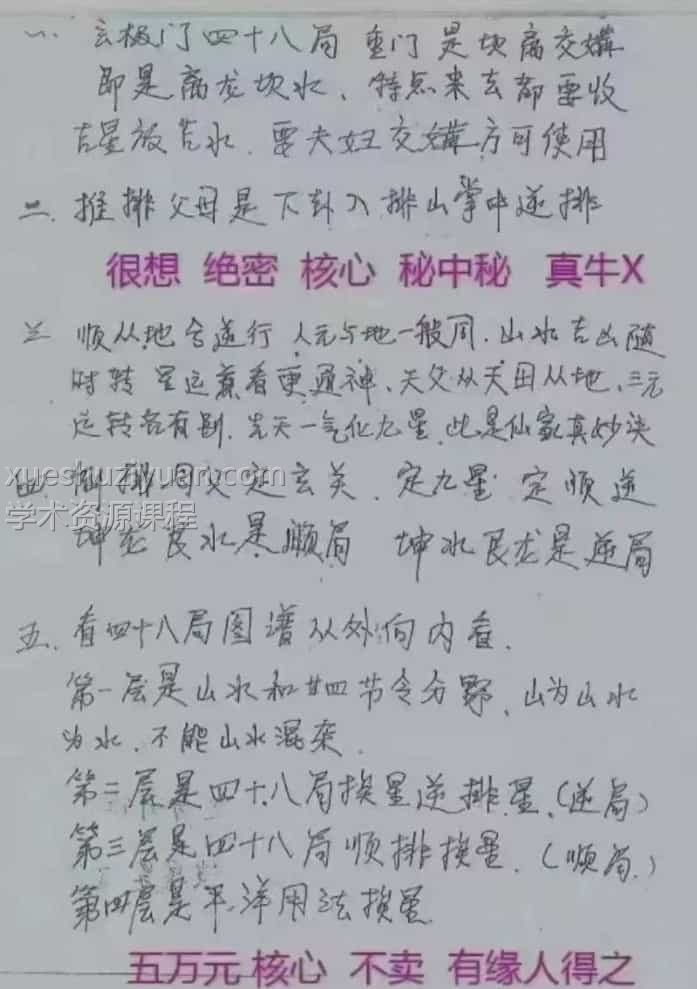 一、玄极门四十八局 重门是坎离交媾
即是离龙坎水、特点来去都要收
吉星放吉水、要夫妇交媾方可使用
二、推排父母是下卦入排山掌中逆排
很想 绝密 核心 秘中秘 真牛X
三 顺从地舍逆行 人元与地一般同、山水吉凶随
时转 星运兼看更通神、天父从天母从地、三元
运转各有别、先天一气化九星、此是仙家真妙诀
xueshuziyuan.com
四、排母父定玄关、定九星 定顺逆
学术资源课程
坤龙艮水是顺局 坤水艮龙是逆局
五、看四十八局图谱从外向内看、
第一层是山水和廿四节令分野、山为山水
为水、不能山水混杂
第二层是四十八局挨星逆排星、(逆局)
第三层是四十八局顺排挨星、(顺局、)
第四层是平洋用法挨星
五万元核心 不卖 有缘人得之